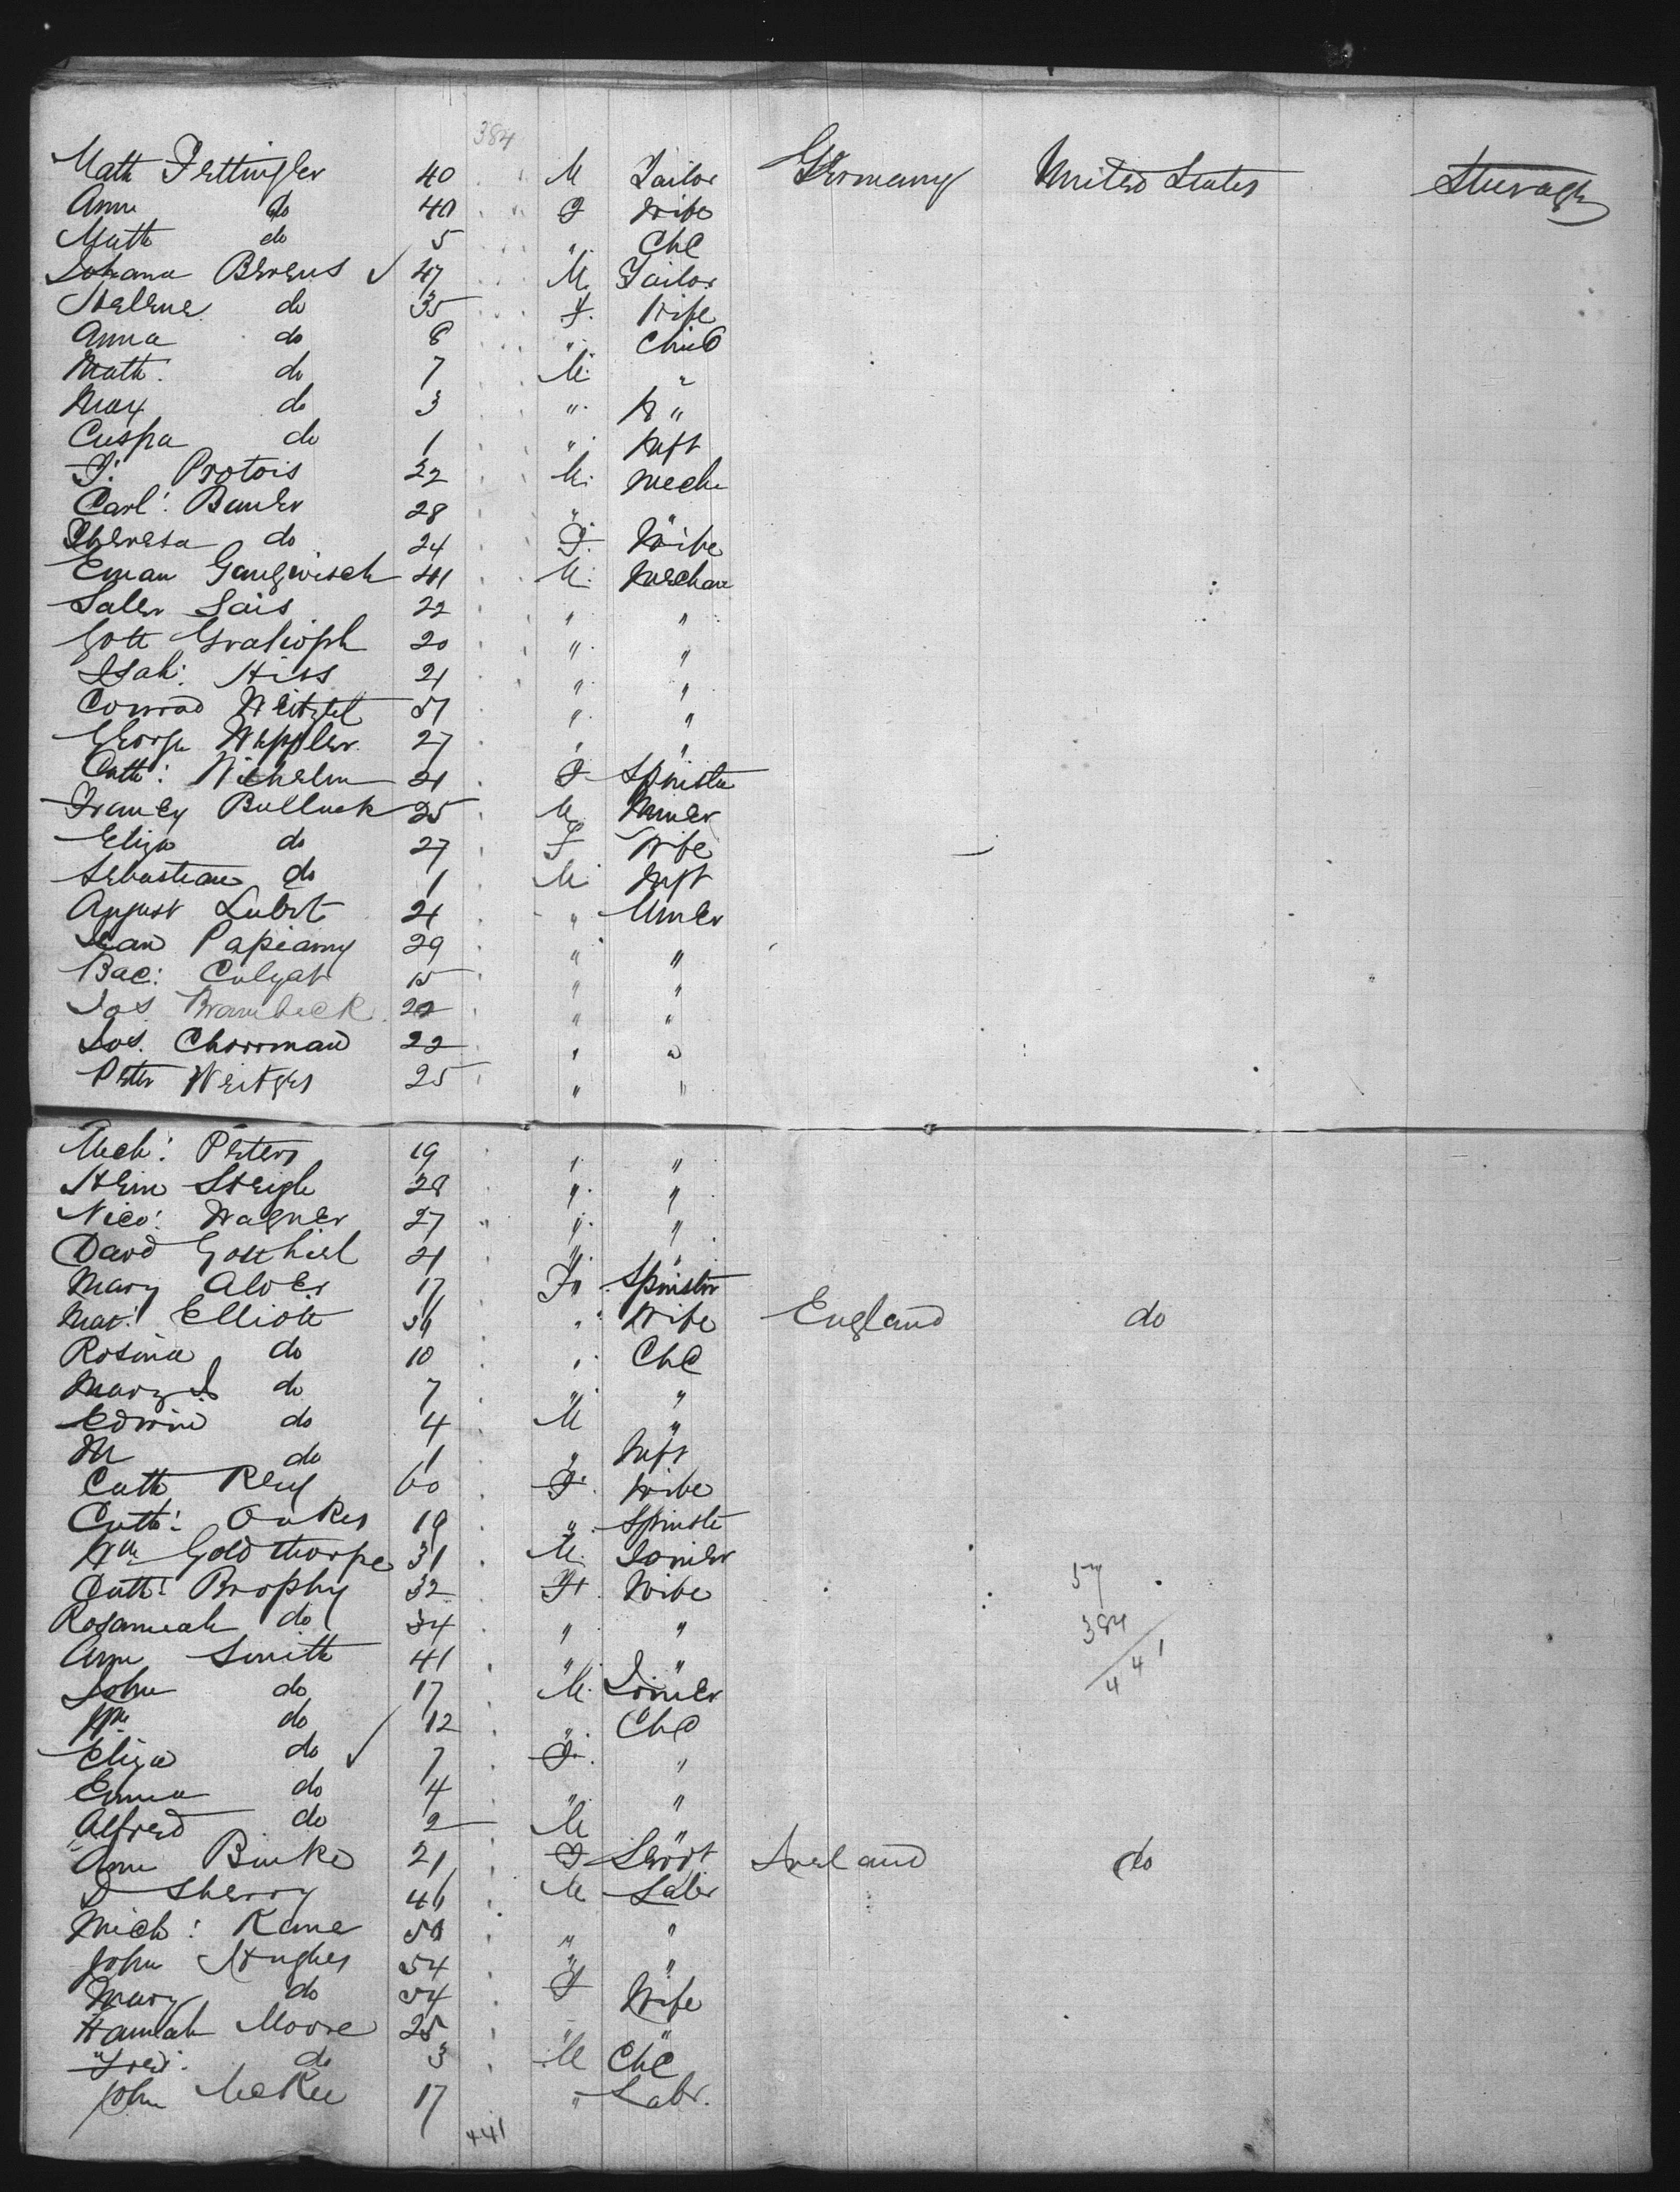 384
Math Fettingler 40 M Tailor Germany United States Steerage
Ann do 40 F Wife
Math do 5 " Chd
Johana Berens ✓ 47 M Tailor
Helene do 35 F. Wife
Anna do 8 " Child
Math. do 7 M. "
Max do 3 " "
Cuspa do 1 " Inft
J. Protois 22 M. Mech
Carl: Bauer 28 " "
Theresa do 24 F. Wife
Eman Gangwisch 41 M. Mechan
Saler Sais 22 " "
Gott 20 " "
Isah: Hiss 21 " "
Conrad Weitzel 51 " "
George Weppler 27 " "
Cath: Wilhelm 21 F Spinster
Francy Bulluck 25 M Miner
Eliza do 27 F Wife
Sebastian do 1 M Inft
August Lubet 21 " Miner
Jean Papiamy 29 " "
Bac: Culyat 15 " "
Jos. Brambeck 22 " "
Jos. Chorrman 22 " "
Peter Weitges 25 " "
Mich: Peters 19 " "
Hein Steigh 28 " "
Nico: Wagner 27 " "
David Gotthiel 21 " "
Mary Alver 17 F. Spinster
Mar: Elliott 36 " Wife England do
Rosina do 10 " Chd
Mary S do 7 " "
Edwin do 4 M "
M do 1 " Inft
Cath 60 F. Wife
Cath: Oakes 19 " Spinster
Wm Goldthorpe 31 M. Joiner
Cath: Brophy 32 F. Wife
57
Rosannah do 34 " "
384
Ann Smith 41 " "
441
John do 17 M. Joiner
Wm do 12 " Chd
Eliza do ✓ 7 F. "
Emma do 4 " "
Alfred do 2 M "
Ann Burke 21 F Servt Ireland do
D Sherry 46 M Labr
Mich: Kane 50 " "
John Hughes 54 " "
Mary do 54 F Wife
Hannah Moore 25 " "
Fred. do 3 M Chd
John McKee 17 " Labr.
441